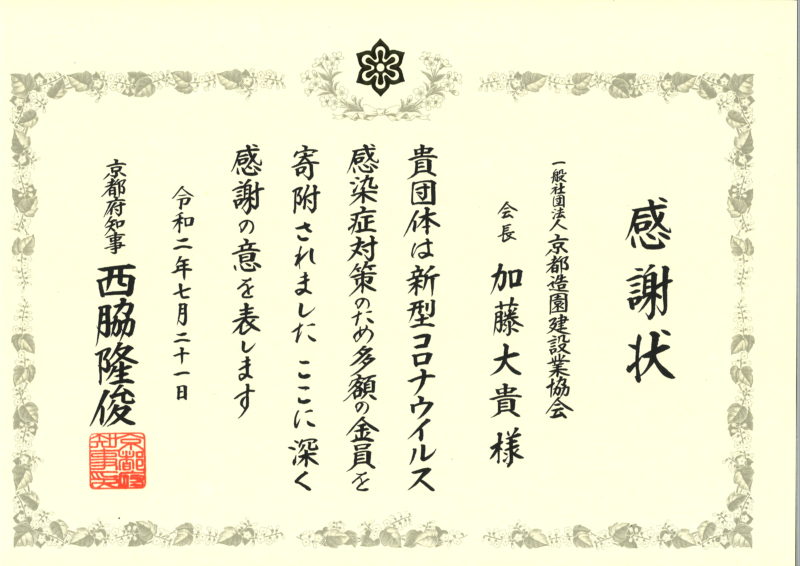 感謝状
一般社団法人 京都造園建設業協会
会長 加藤大貴様
貴団体は新型コロナウイルス
感染症対策のため多額の金員を
寄附されました ここに深く
感謝の意を表します
令和二年七月二十一日
京都府知事 西脇隆俊
京都府
知事印